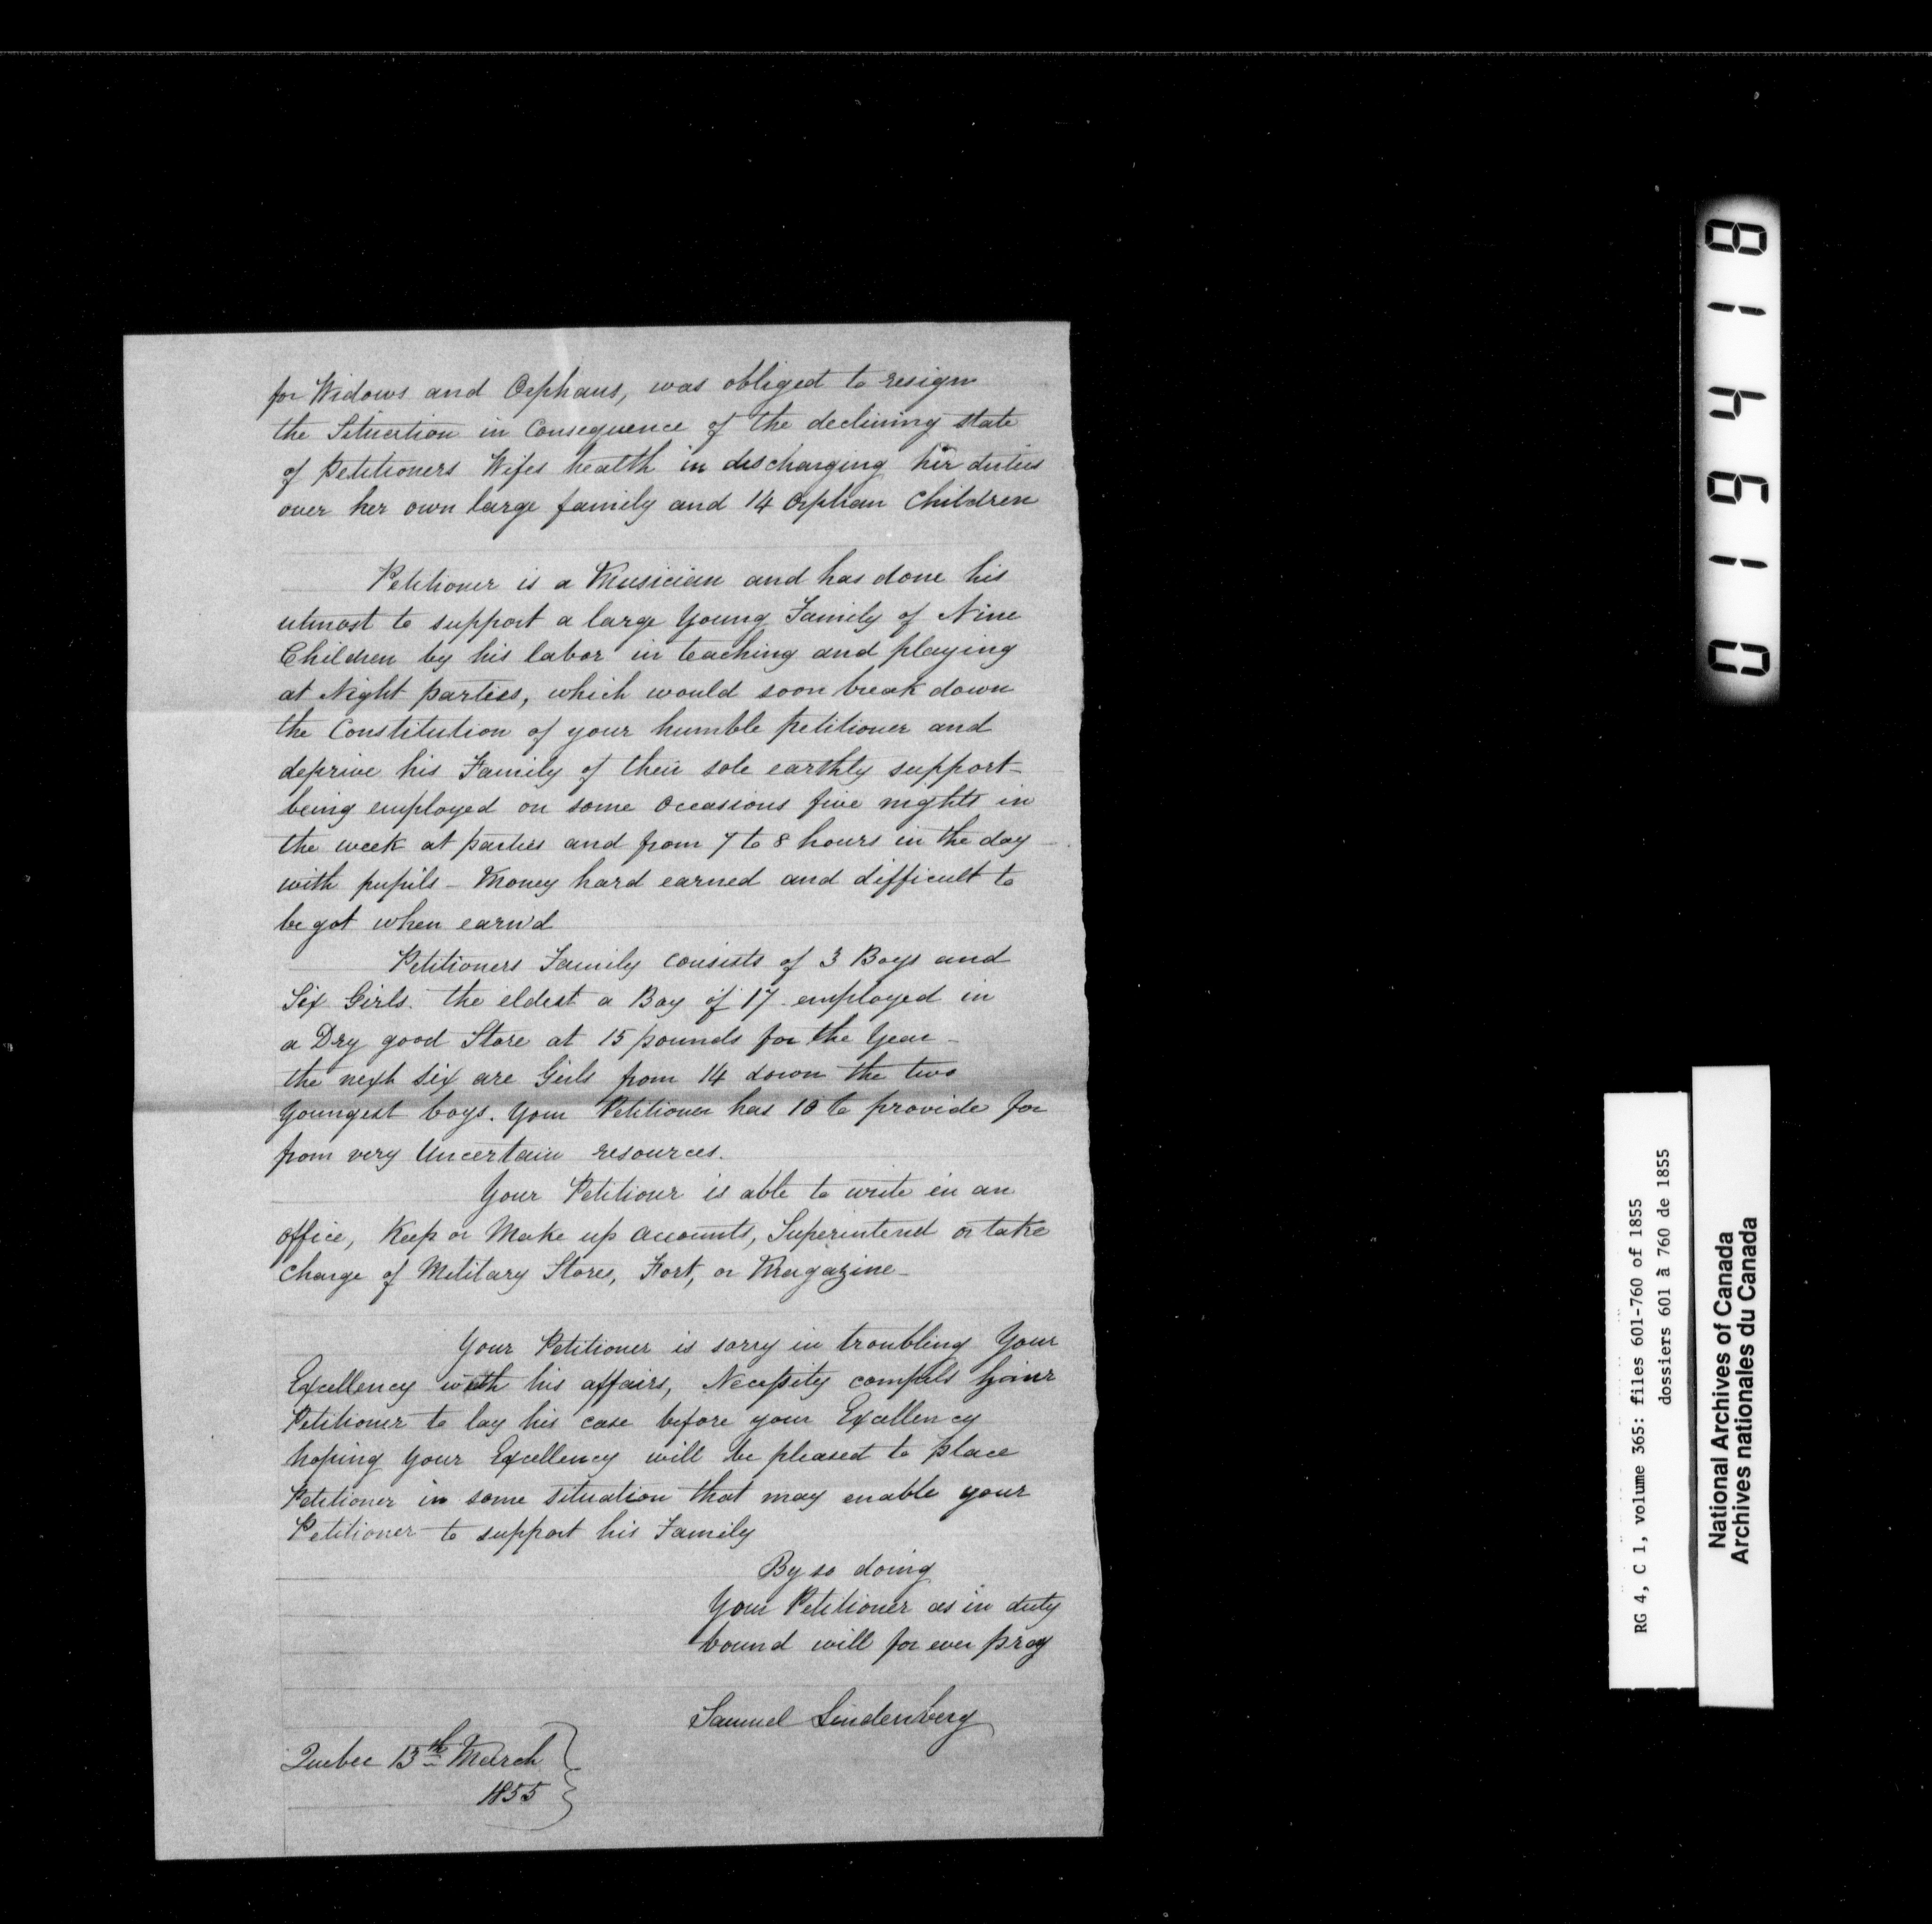 for Widows and Orphans, was obliged to resign
the Situation in Consequence of the declining state
of Petitioners Wifes health in discharging her duties
over her own large family and 14 Orphan Children
Petitioner is a Musician and has done his
utmost to support a large Young Family of Nine
Children by his labor in teaching and playing
at Night parties, which would soon break down
the Constitution of your humble petitioner and
deprive his Family of their sole earthly support—
being employed on some occasions five nights in
the week at parties and from 7 to 8 hours in the day —
with pupils — Money hard earned and difficult to
be got when earn'd
Petitioners Family consists of 3 Boys and
Six Girls. the eldest a Boy of 17 employed in
a Dry good Store at 15 pounds for the Year —
the next six are Girls from 14 down the two
Youngest boys. Your Petitioner has 10 to provide for
from very Uncertain resources.
Your Petitioner is able to write in an
office, Keep or Make up accounts, Superintend or take
Charge of Military Stores, Fort, or Magazine—
Your Petitioner is sorry in troubling Your
Excellency with his affairs, Necessity compels Your
Petitioner to lay his case before your Excellency
hoping Your Excellency will be pleased to place
Petitioner in some situation that may enable your
Petitioner to support his Family
By so doing
Your Petitioner as in duty
bound will for ever pray
Samuel Lindenberg
Quebec 13th March
1855
019418
RG 4, C 1, volume 365: files 601-760 of 1855
dossiers 601 à 760 de 1855
National Archives of Canada
Archives nationales du Canada